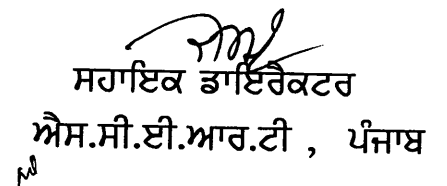 ਸਹਾਇਕ ਡਾਇਰੈਕਟਰ
ਐਸ.ਸੀ.ਈ.ਆਰ.ਟੀ , ਪੰਜਾਬ